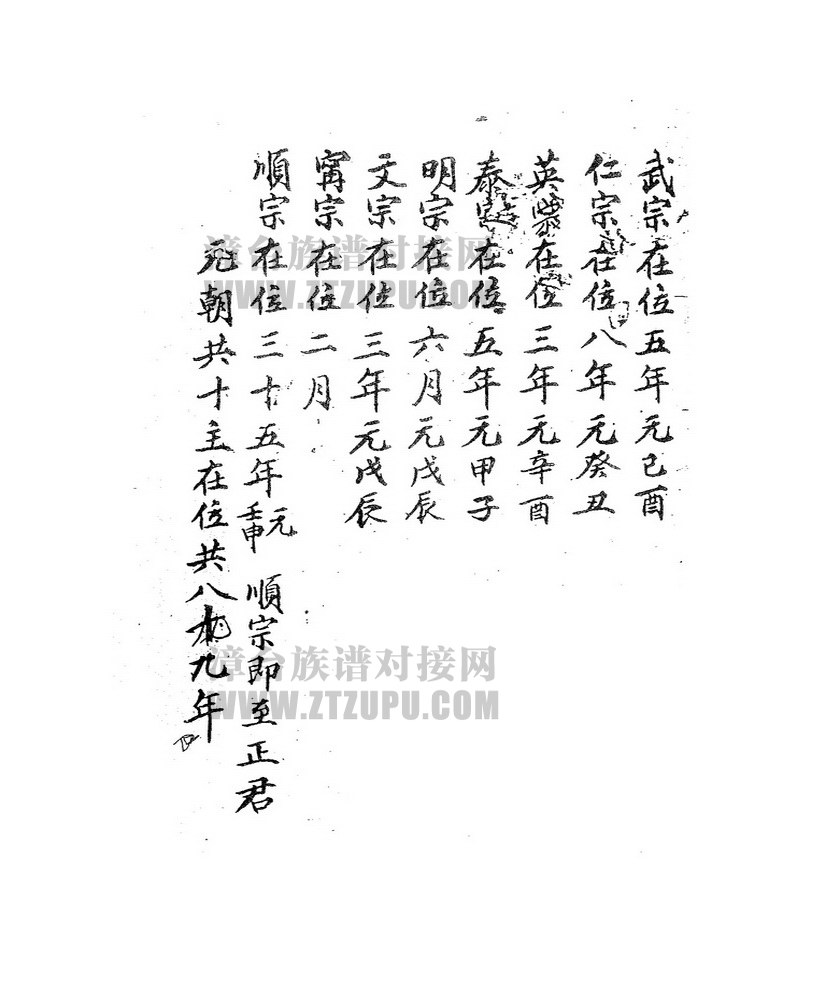 武宗在位五年元己酉
仁宗在位八年元癸丑
英宗在位三年元辛酉
泰定在位五年元甲子
明宗在位六月元戊辰
文宗在位三年元戊辰
甯宗在位二月
順宗在位三十五年元壬申 順宗即至正君
元朝共十主在位共八十九年
漳台族谱对接网
WWW.ZTZUPU.COM
漳台族谱对接网
WWW.ZTZUPU.COM